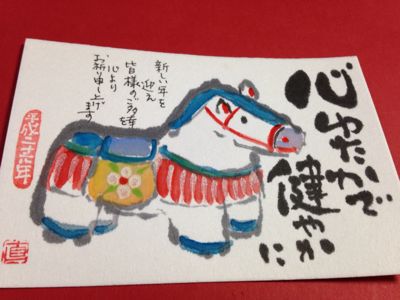 心ゆたかで
健やかに
新しい年を
迎え
皆様のご多幸を
心より
お祈り申し上げます
平成二十六年
真